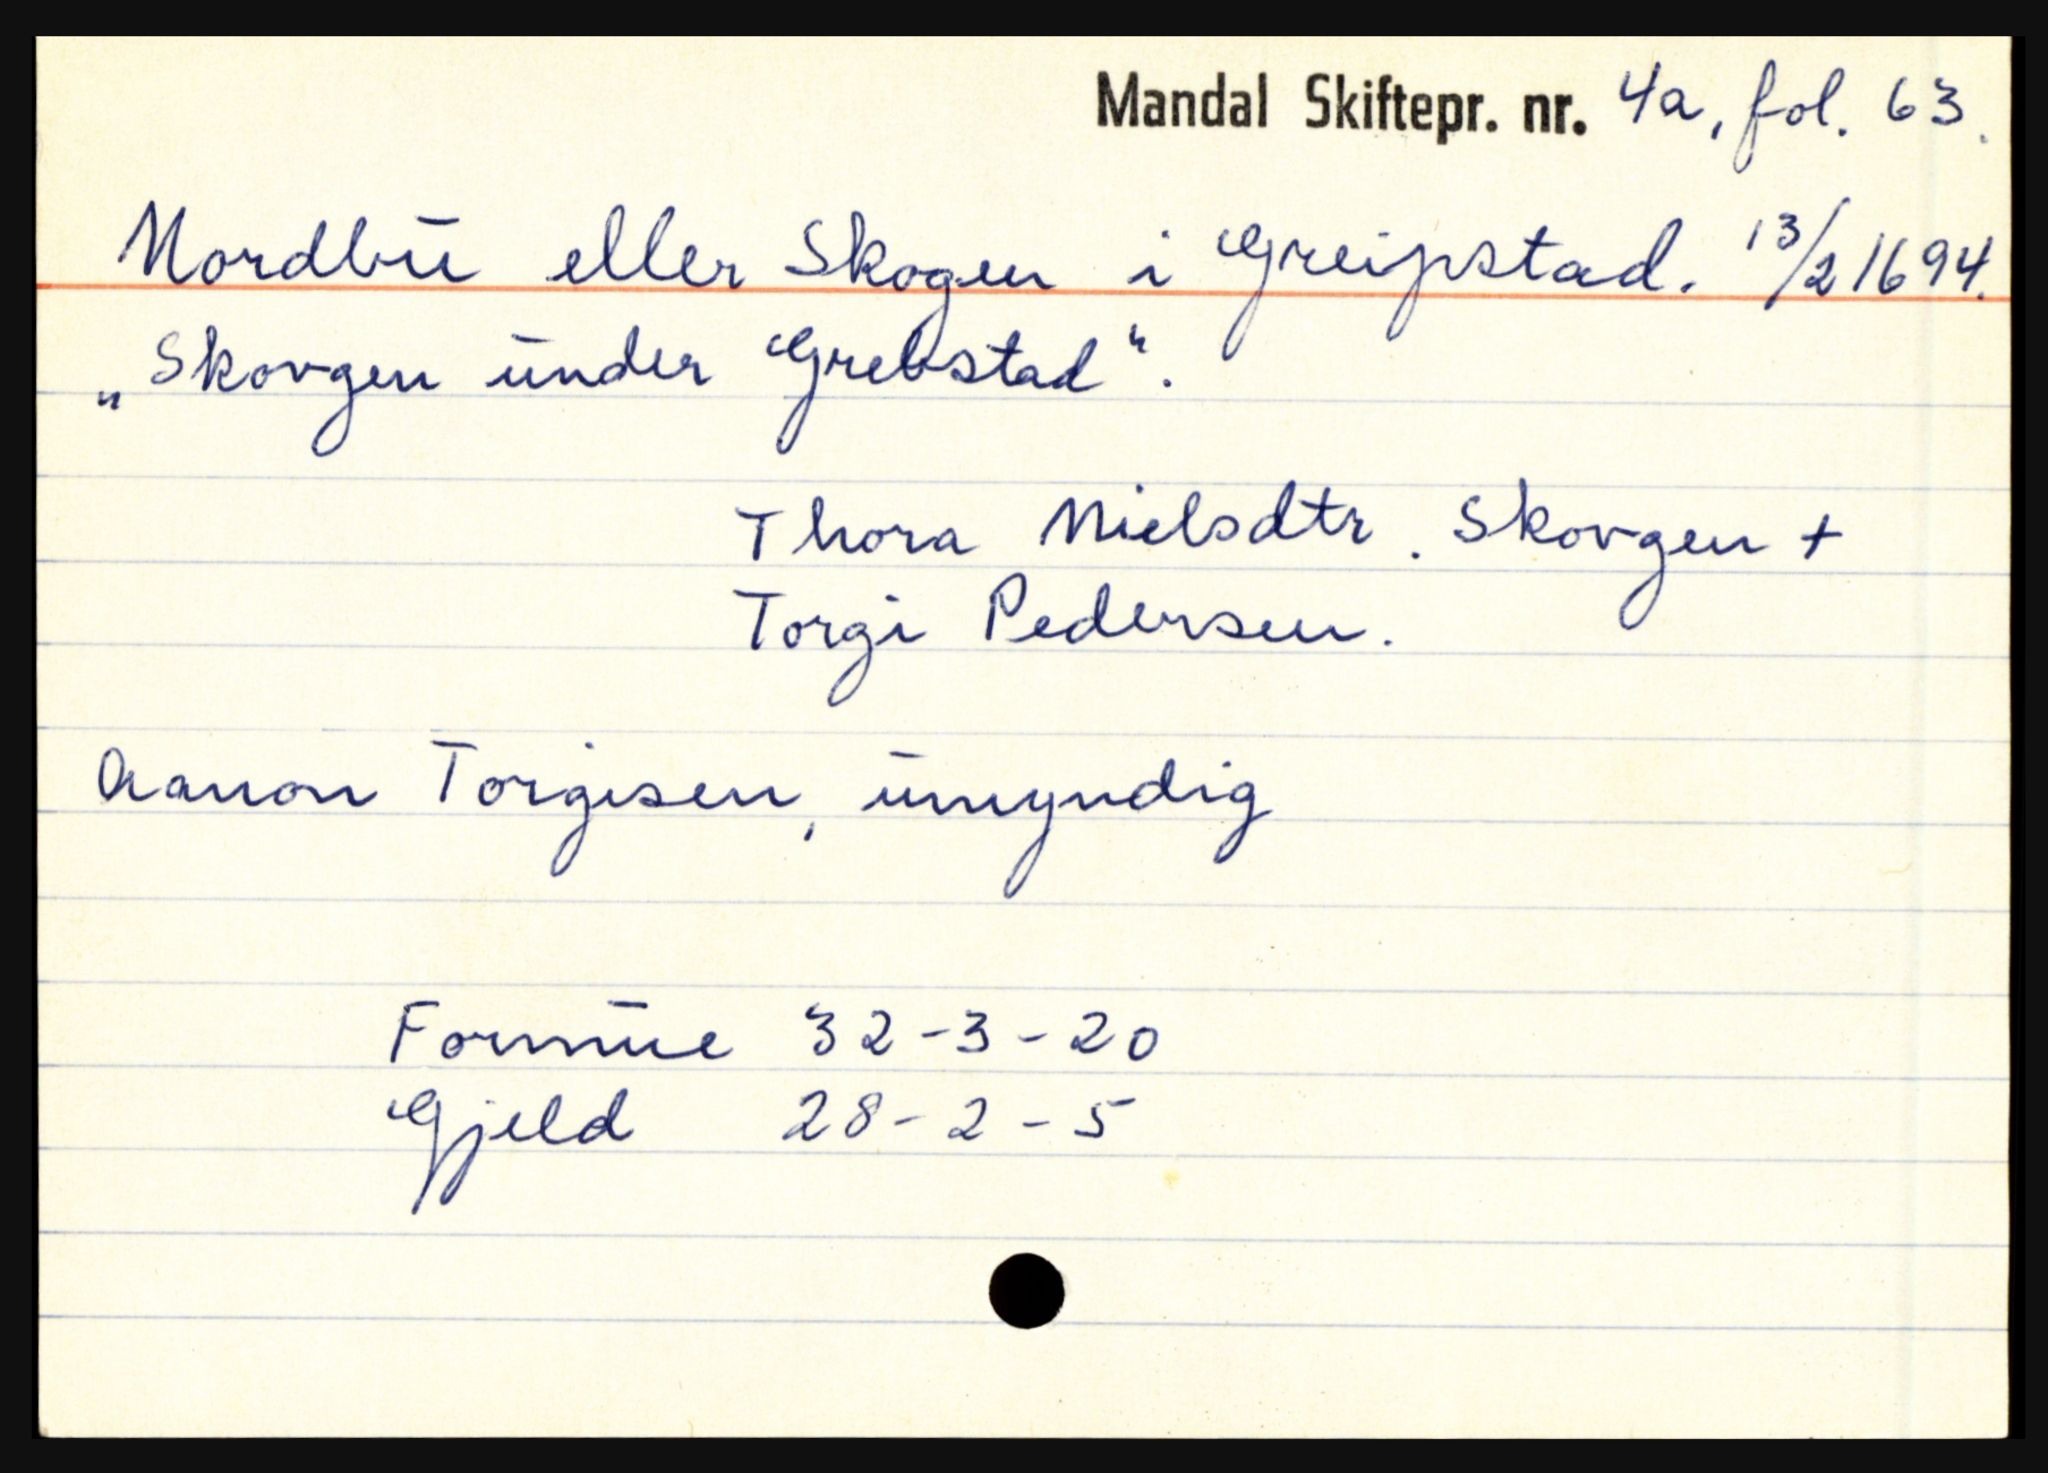 Mandal Skiftepr. nr. 4a, fol. 63.
Nordbu eller Skogen i Greipstad. 13/2 1694.
„Skovgen under Grebstad“.
Thora Nielsdtr. Skovgen +
Torgi Pedersen.
Aanon Torgisen, umyndig
Formue 32-3-20
Gjeld 28-2-5